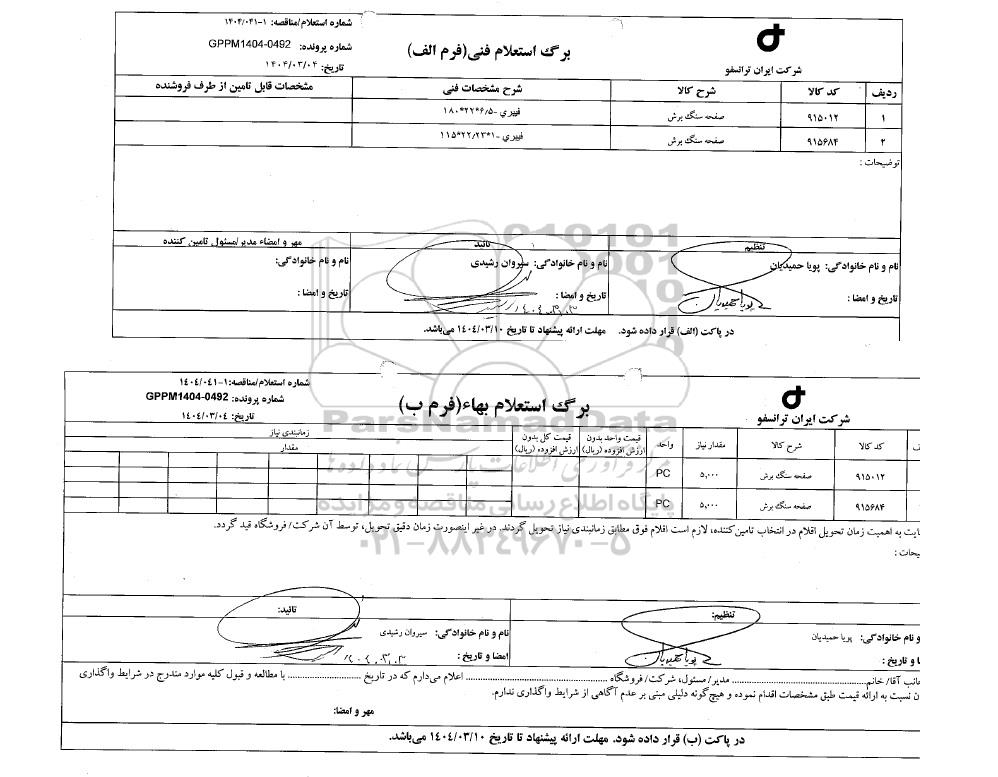 شماره استعلام/مناقصه: ۱-۱۴۰۴/۰۴۱
شماره پرونده: GPPM1404-0492
تاریخ: ۱۴۰۴/۰۳/۰۴
برگ استعلام فنی(فرم الف)
شرکت ایران ترانسفو
ردیف کد کالا شرح کالا شرح مشخصات فنی مشخصات قابل تامین از طرف فروشنده
۱ ۹۱۵۰۱۲ صفحه سنگ برش فیبري -۱۸۰*۲۲*۶/۵
۲ ۹۱۵۶۸۴ صفحه سنگ برش فیبري -۱۱۵*۲۲/۲۳*۱
توضیحات :
تنظیم تائید مهر و امضاء مدیر/مسئول تامین کننده
نام و نام خانوادگی: پویا حمیدیان نام و نام خانوادگی: سیروان رشیدی نام و نام خانوادگی:
تاریخ و امضا : تاریخ و امضا : تاریخ و امضا :
در پاکت (الف) قرار داده شود. مهلت ارائه پیشنهاد تا تاریخ ۱۴۰۴/۰۳/۱۰ می‌باشد.
شماره استعلام/مناقصه:۱-۱۴۰٤/۰٤۱
شماره پرونده: GPPM1404-0492
تاریخ: ۱۴۰٤/۰۳/۰٤
برگ استعلام بهاء(فرم ب)
شرکت ایران ترانسفو
ParsNamadData
کد کالا شرح کالا مقدار نیاز واحد قیمت واحد بدون ارزش افزوده (ریال) قیمت کل بدون ارزش افزوده (ریال) زمانبندی نیاز
مقدار
۹۱۵۰۱۲ صفحه سنگ برش ۵,۰۰۰ PC
۹۱۵۶۸۴ صفحه سنگ برش ۵,۰۰۰ PC
پایگاه اطلاع رسانی مناقصه و مزایده
۰۲۱-۸۸۳۴۹۶۷۰-۵
به اهمیت زمان تحویل اقلام در انتخاب تامین‌کننده، لازم است اقلام فوق مطابق زمانبندی نیاز تحویل گردند. در غیر اینصورت زمان دقیق تحویل، توسط آن شرکت/ فروشگاه قید گردد.
تنظیم: تائید:
و نام خانوادگی: پویا حمیدیان نام و نام خانوادگی: سیروان رشیدی
و تاریخ : امضا و تاریخ :
آقا/ خانم مدیر/ مسئول، شرکت/ فروشگاه اعلام می‌دارم که در تاریخ با مطالعه و قبول کلیه موارد مندرج در شرایط واگذاری
نسبت به ارائه قیمت طبق مشخصات اقدام نموده و هیچ‌گونه دلیلی مبنی بر عدم آگاهی از شرایط واگذاری ندارم.
مهر و امضا:
در پاکت (ب) قرار داده شود. مهلت ارائه پیشنهاد تا تاریخ ۱۴۰٤/۰۳/۱۰ می‌باشد.